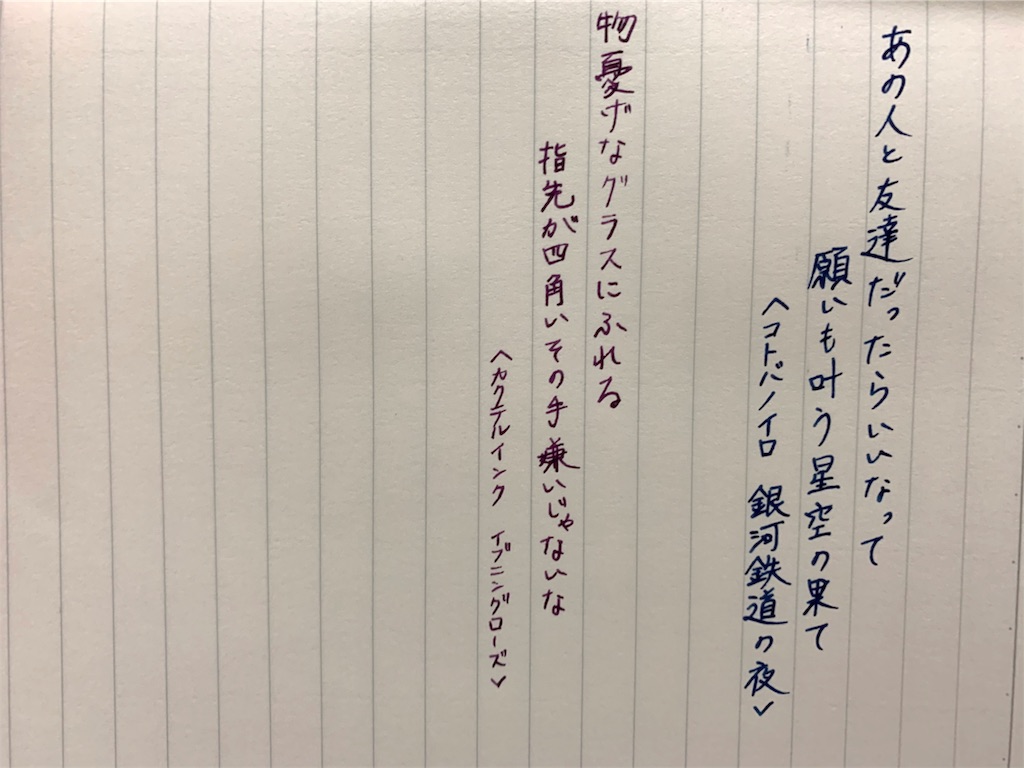 あの人と友達だったらいいなって
願いも叶う星空の果て
〈コトバノイロ 銀河鉄道の夜〉
物憂げなグラスにふれる
指先が四角いその手嫌いじゃないな
〈カクテルインク イブニングローズ〉